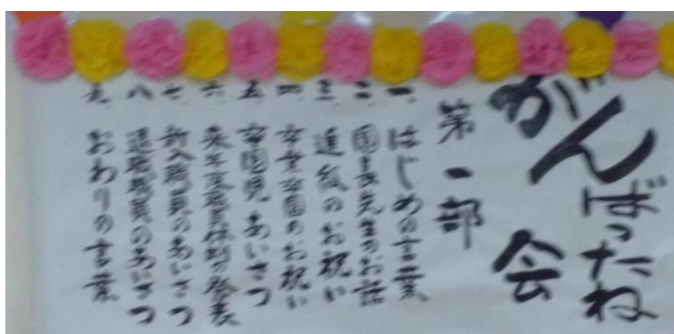 がんばったね
会
第一部
一、はじめの言葉
二、園長先生のお話
三、進級のお祝い
四、卒業卒園のお祝い
五、卒園児あいさつ
六、来年度職員体制の発表
七、新入職員のあいさつ
八、退職職員のあいさつ
九、おわりの言葉